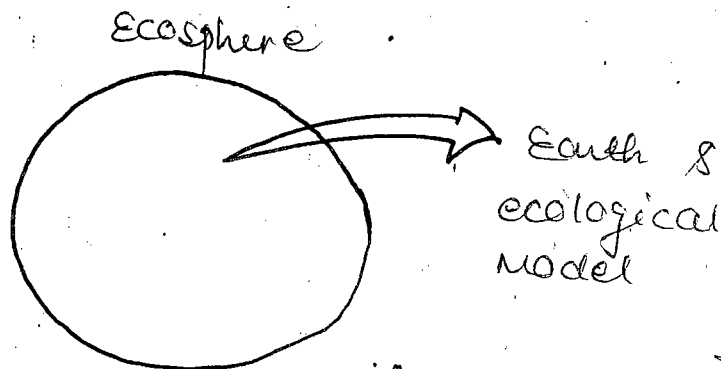 Ecosphere
Earth &
ecological
Model